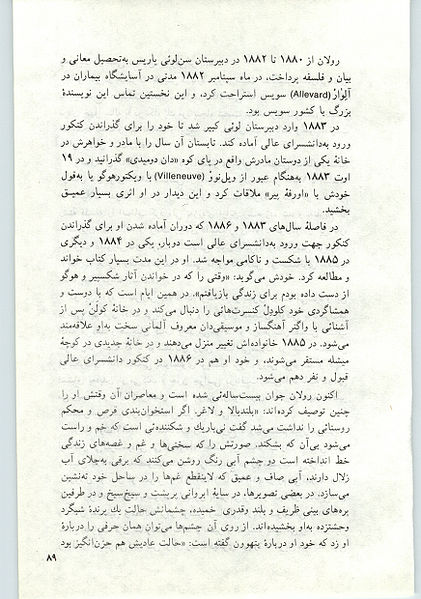 رولان از ۱۸۸۰ تا ۱۸۸۲ در دبیرستان سن‌لوئی پاریس به‌تحصیل معانی و
بیان و فلسفه پرداخت، در ماه سپتامبر ۱۸۸۲ مدتی در آسایشگاه بیماران در
آلوار (Allevard) سویس استراحت کرد، و این نخستین تماس این نویسندهٔ
بزرگ با کشور سویس بود.
در ۱۸۸۳ وارد دبیرستان لوئی کبیر شد تا خود را برای گذراندن کنکور
ورود به‌دانشسرای عالی آماده کند. تابستان آن سال را با مادر و خواهرش در
خانهٔ یکی از دوستان مادرش واقع در پای کوه «دان دومیدی» گذرانید و در ۱۹
اوت ۱۸۸۳ به‌هنگام عبور از ویل‌نوو (Villeneuve) با ویکتورهوگو یا به‌قول
خودش با «اورفهٔ پیر» ملاقات کرد و این دیدار در او اثری بسیار عمیق
بخشید.
در فاصلهٔ سال‌های ۱۸۸۳ و ۱۸۸۶ که دوران آماده شدن او برای گذراندن
کنکور جهت ورود به‌دانشسرای عالی است دوبار، یکی در ۱۸۸۴ و دیگری
در ۱۸۸۵ با شکست و ناکامی مواجه شد. او در این مدت بسیار کتاب خواند
و مطالعه کرد. خودش می‌گوید: «وقتی را که در خواندن آثار شکسپیر و هوگو
از دست داده بودم برای زندگی بازیافتم». در همین ایام است که با دوست و
همشاگردی خود کلودل کنسرت‌هائی را دنبال می‌کند و در خانهٔ کولن پس از
آشنائی با واگنر آهنگساز و موسیقی‌دان معروف آلمانی سخت به‌او علاقه‌مند
می‌شود. در ۱۸۸۵ خانواده‌اش تغییر منزل می‌دهند و در خانهٔ جدیدی در کوچهٔ
میشله مستقر می‌شوند، و خود او هم در ۱۸۸۶ در کنکور دانشسرای عالی
قبول و نفر دهم می‌شود.
اکنون رولان جوان بیست‌ساله‌ئی شده است و معاصران آن وقتش او را
چنین توصیف کرده‌اند: «بلندبالا و لاغر. اگر استخوان‌بندی قرص و محکم
روستائی را نداشت می‌شد گفت نی‌باریک و شکننده‌ئی است که خم و راست
می‌شود بی‌آن که بشکند. صورتش را که سختی‌ها و غم و غصه‌های زندگی
خط انداخته است دو چشم آبی رنگ روشن می‌کنند که برقی به‌جلای آب
زلال دارند، آبی صاف و عمیق که لاینقطع غم‌ها را در ساحل خود ته‌نشین
می‌سازد. در بعضی تصویرها، در سایهٔ ابروانی پرپشت و سیخ‌سیخ و در طرفین
بره‌های بینی ظریف و بلند وقدری خمیده، چشمانش حالت یك پرندهٔ شبگرد
وحشتزده به‌او بخشیده‌اند. از روی آن چشم‌ها می‌توان همان حرفی را دربارهٔ
او زد که خود او دربارهٔ بتهوون گفته است: «حالت عادیش هم حزن‌انگیز بود
۸۹